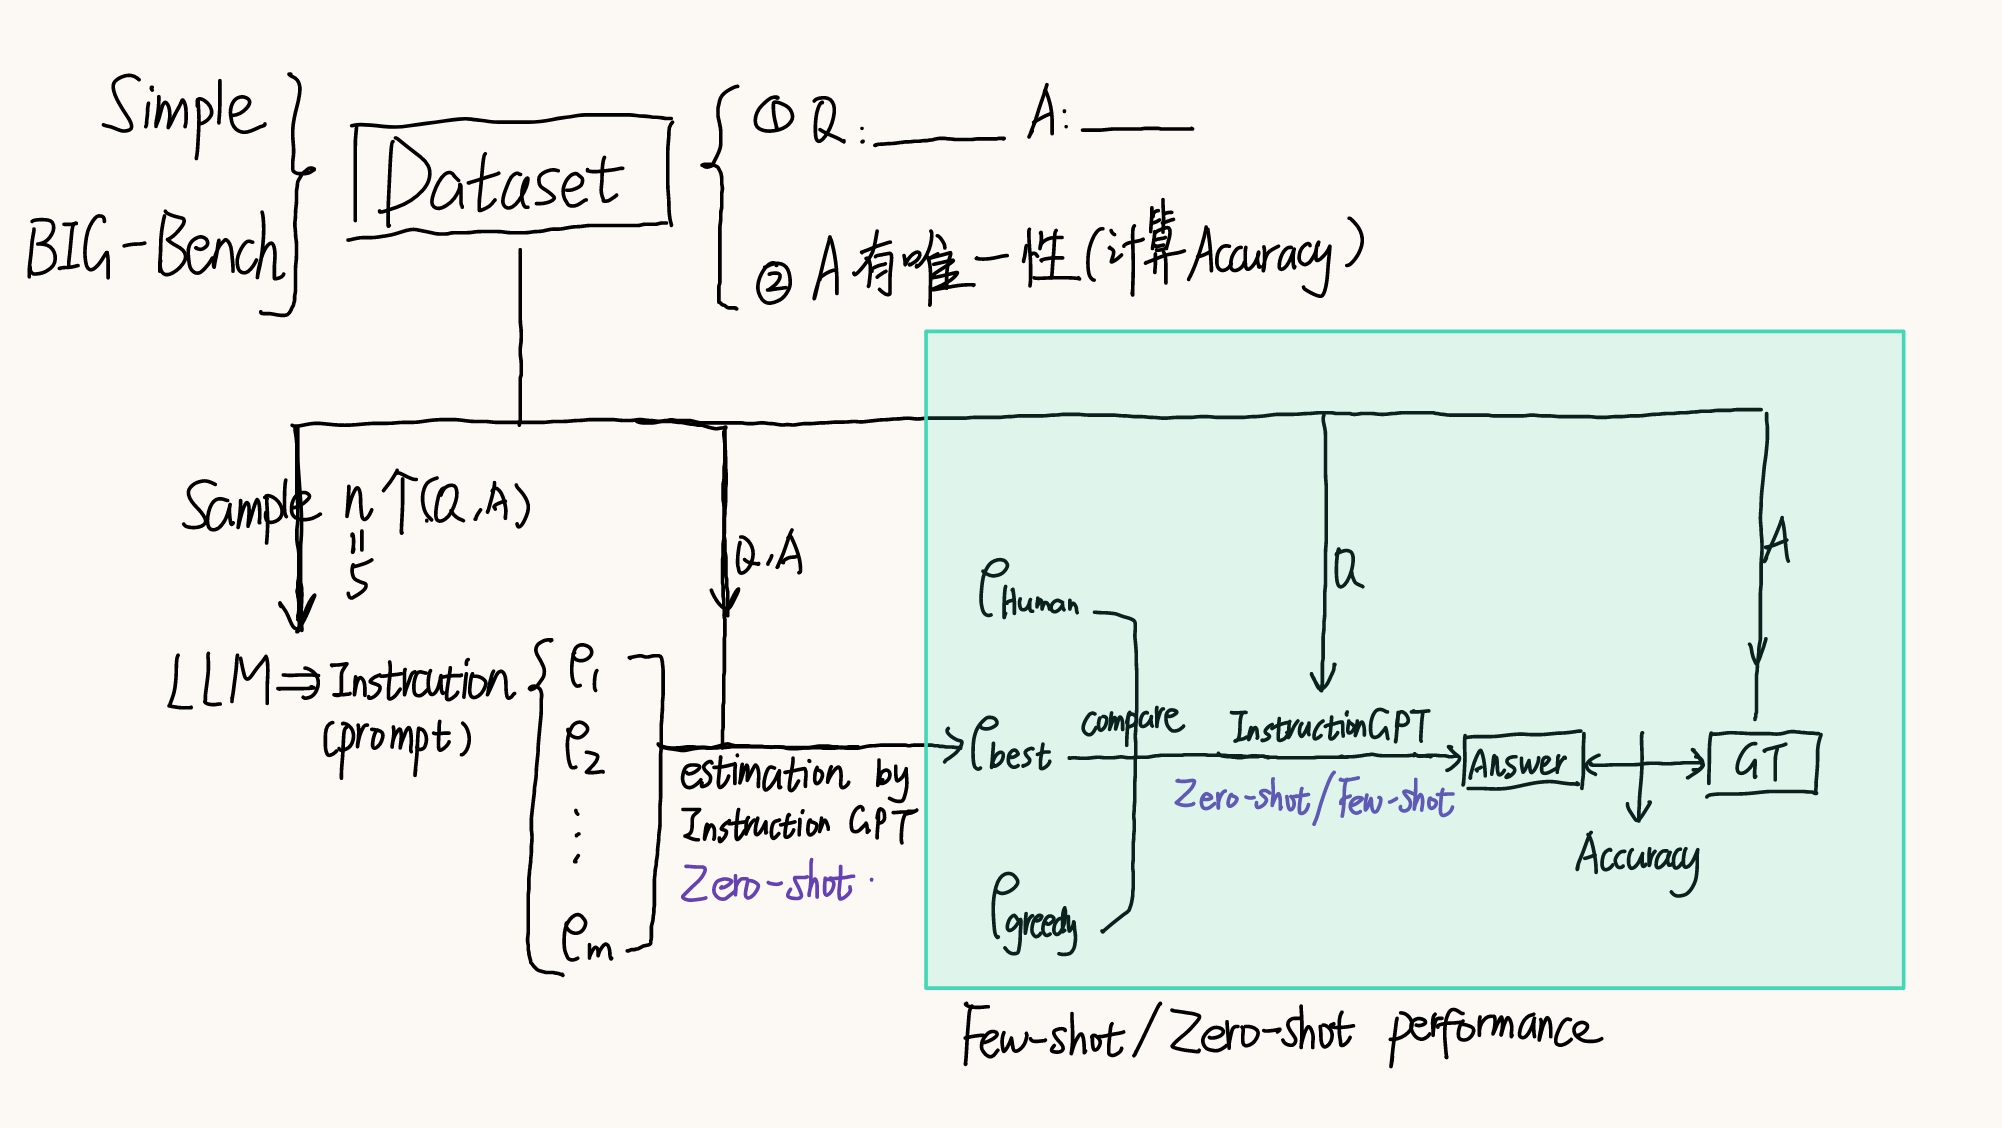 Simple
BIG-Bench
Dataset
① Q:_____ A:_____
② A有唯一性(计算Accuracy)
Sample n个(Q,A)
=
5
Q,A
Q
A
LLM⇒Instrcution
(prompt)
ρ1
ρ2
⋮
ρm
estimation by
Instruction GPT
Zero-shot.
ρHuman
ρbest
ρgreedy
compare
InstructionGPT
Zero-shot/Few-shot
Answer
GT
Accuracy
Few-shot/Zero-shot performance